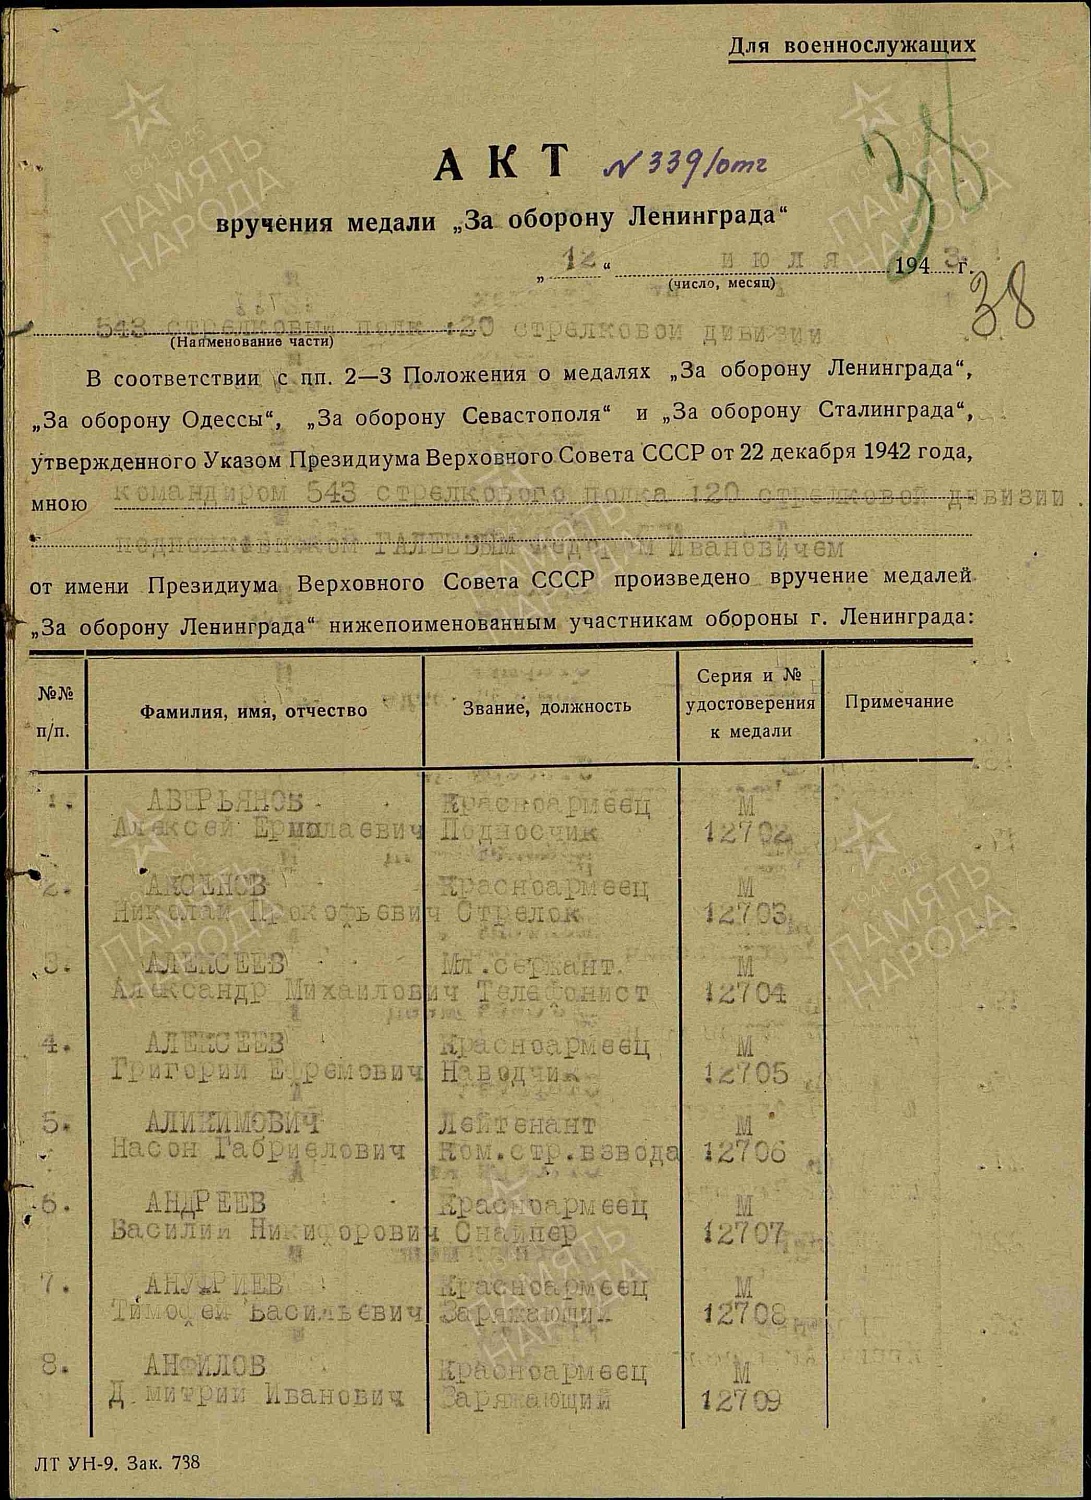 Для военнослужащих
АКТ № 339/отг
38
вручения медали „За оборону Ленинграда“
„ 12 “ июля 1943 г.
(число, месяц)
38
543 стрелковый полк 120 стрелковой дивизии
(Наименование части)
В соответствии с пп. 2—3 Положения о медалях „За оборону Ленинграда“,
„За оборону Одессы“, „За оборону Севастополя“ и „За оборону Сталинграда“,
утвержденного Указом Президиума Верховного Совета СССР от 22 декабря 1942 года,
мною командиром 543 стрелкового полка 120 стрелковой дивизии
подполковником ГАЛЕЕВЫМ Федором Ивановичем
от имени Президиума Верховного Совета СССР произведено вручение медалей
„За оборону Ленинграда“ нижепоименованным участникам обороны г. Ленинграда:
№№ п/п. Фамилия, имя, отчество Звание, должность Серия и № удостоверения к медали Примечание
1. АВЕРЬЯНОВ Красноармеец М
Алексей Ермолаевич Подносчик 12702
2. АКСЕНОВ Красноармеец М
Николай Прокофьевич Стрелок 12703
3. АЛЕКСЕЕВ Мл.сержант. М
Александр Михайлович Телефонист 12704
4. АЛЕКСЕЕВ Красноармеец М
Григорий Ефремович Наводчик 12705
5. АЛИКИМОВИЧ Лейтенант М
Насон Габриелович Ком.стр.взвода 12706
6. АНДРЕЕВ Красноармеец М
Василий Никифорович Снайпер 12707
7. АНУФРИЕВ Красноармеец М
Тимофей Васильевич Заряжающий 12708
8. АНФИЛОВ Красноармеец М
Дмитрий Иванович Заряжающий 12709
ЛТ УН-9. Зак. 738
ПАМЯТЬ
НАРОДА